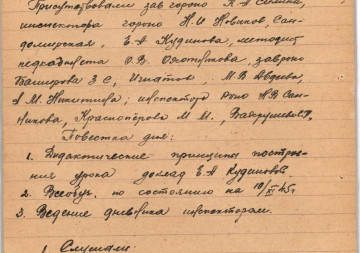 Присутствовали зав гороно К А
инспектора гороно Н.И Новиков, Сан-
домирская, Е А Кудинова, методист
педкабинета О.В. заврайо
Баширова З С, Игнатов. М.В Авдеева,
А М. Никитина; инспектора роно Н В Сан-
никова, Красноперова М М.,
Повестка дня:
1. Дидактические принципы построе-
ния урока доклад Е.А Кудиновой.
2. Всеобуч по состоянию на 10/XI 45г
3. Ведение дневника инспекторам.
1. Слушали: